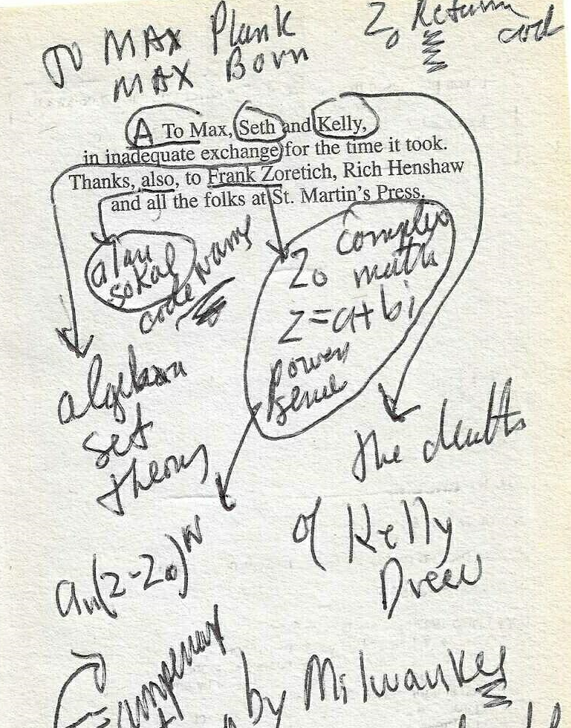 TO MAX Plank
MAX Born
Zo Return
cod
A To Max, Seth and Kelly,
in inadequate exchange for the time it took.
Thanks, also, to Frank Zoretich, Rich Henshaw
and all the folks at St. Martin's Press.
alan
sokal
code name
Zo complex
math
Z=a+bi
power
serie
algebra
set
theory
the deaths
of Kelly
Drew
an(z-zo)^N
by Milwaukee